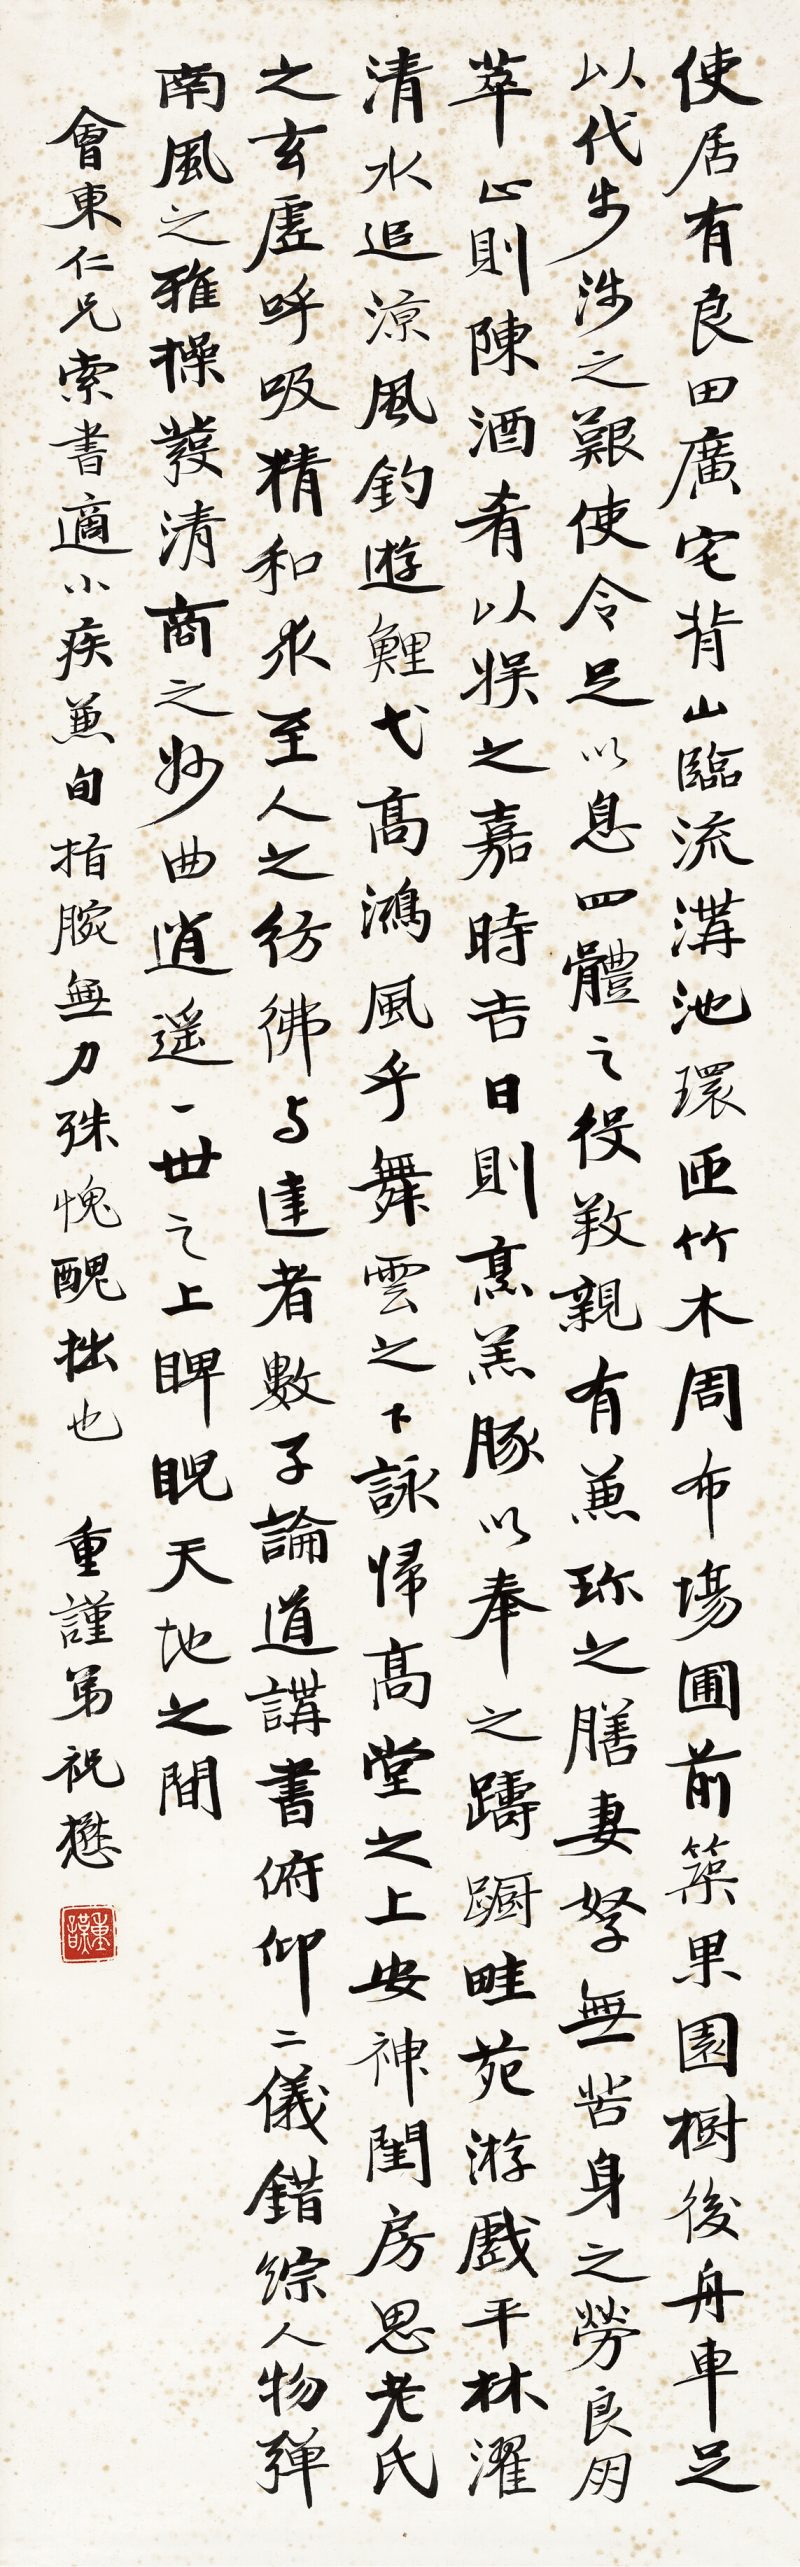 使居有良田廣宅背山臨流溝池環匝竹木周布場圃前築果園樹後舟車足
以代步涉之艱使令足以息四體之役養親有兼珍之膳妻孥無苦身之勞良朋
萃止則陳酒肴以娛之嘉時吉日則烹羔豚以奉之躊躕畦苑游戲平林濯
清水追涼風釣遊鯉弋高鴻風乎舞雲之下詠歸高堂之上安神閨房思老氏
之玄虛呼吸精和求至人之彷彿与達者數子論道講書俯仰二儀錯綜人物彈
南風之雅操發清商之妙曲逍遙一世之上睥睨天地之間
會東仁兄索書適小疾兼旬指腕無力殊愧醜拙也 重謹弟祝懋